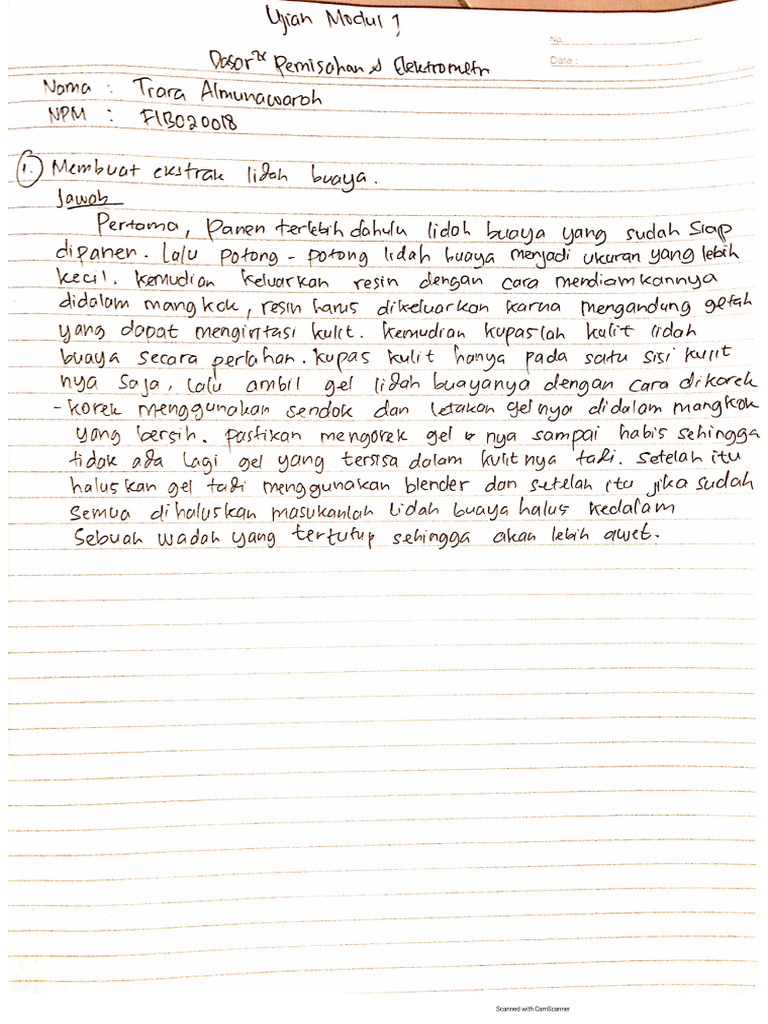 Ujian Modul 1
No.
Date :
Dasar² Pemisahan & Elektrometri
Nama : Tiara Almunawaroh
NPM : F1B020018
1. Membuat ekstrak lidah buaya.
Jawab
Pertama, Panen terlebih dahulu lidah buaya yang sudah siap
dipanen. Lalu potong - potong lidah buaya menjadi ukuran yang lebih
kecil. Kemudian keluarkan resin dengan cara mendiamkannya
didalam mangkok, resin harus dikeluarkan karna mengandung getah
yang dapat mengiritasi kulit. Kemudian kupaslah kulit lidah
buaya secara perlahan. Kupas kulit hanya pada satu sisi kulit
nya saja, Lalu ambil gel lidah buayanya dengan cara dikorek
- korek menggunakan sendok dan letakan gelnya didalam mangkok
yang bersih. Pastikan mengorek gel nya sampai habis sehingga
tidak ada lagi gel yang tersisa dalam kulitnya tadi. Setelah itu
haluskan gel tadi menggunakan blender dan setelah itu jika sudah
semua dihaluskan masukanlah lidah buaya halus kedalam
Sebuah wadah yang tertutup sehingga akan lebih awet.
Scanned with CamScanner